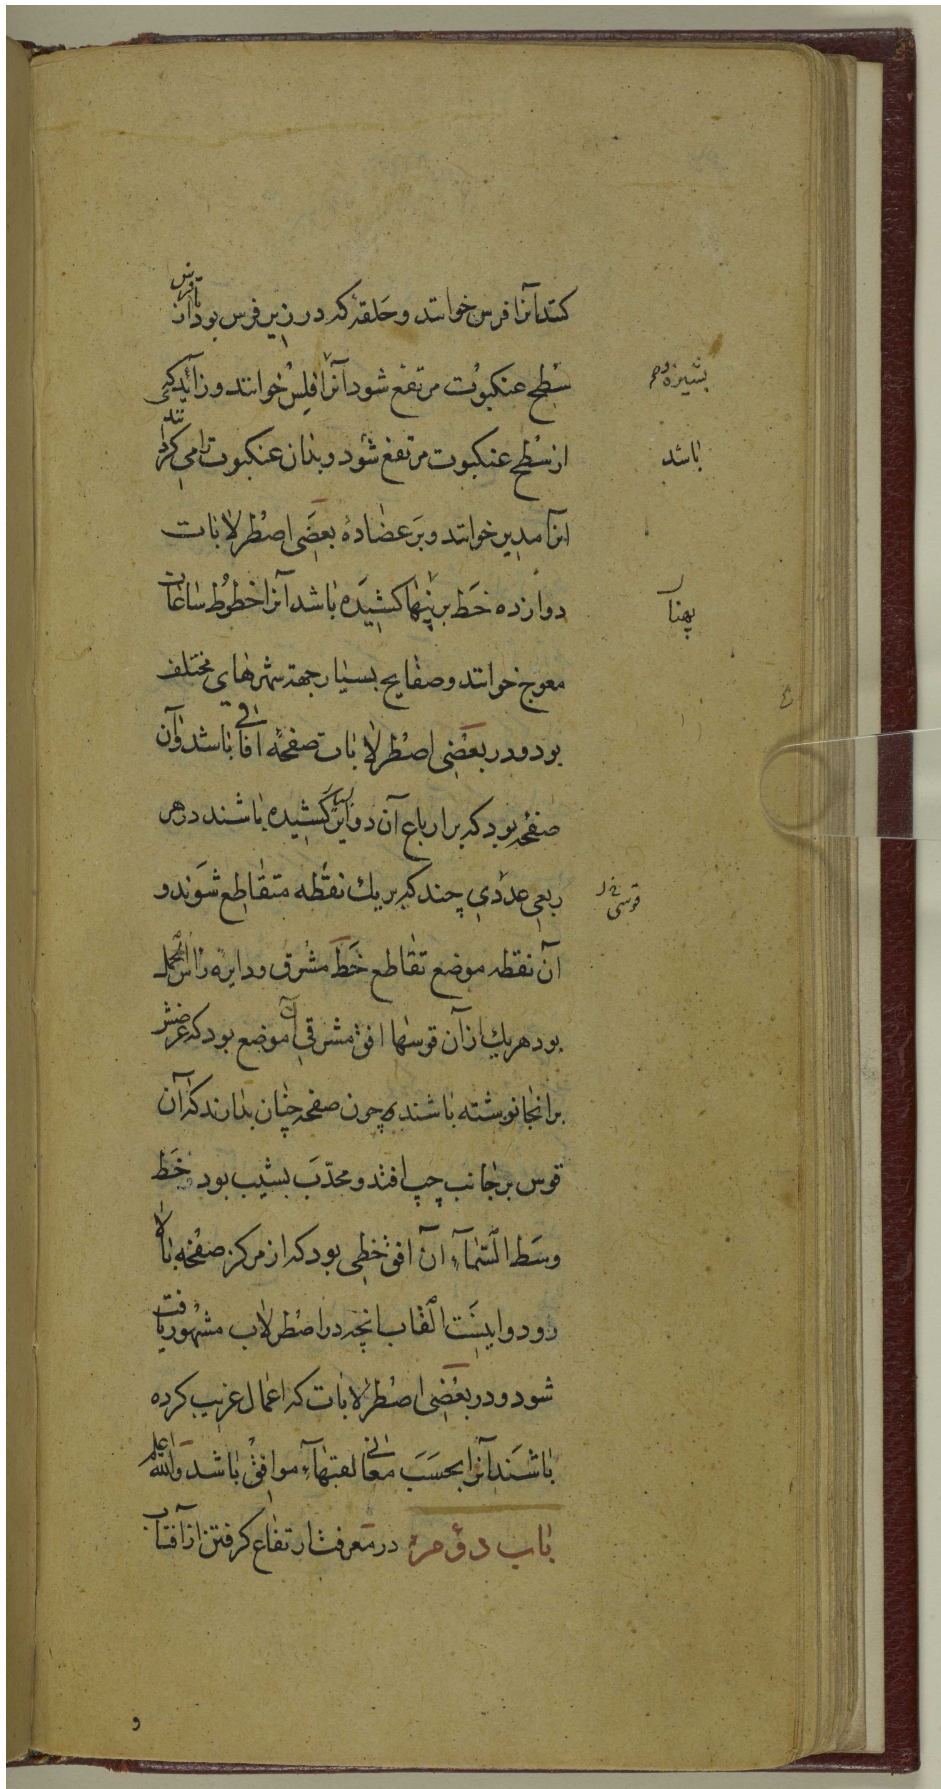 کنند آنرا فرس خوانند و حلقهٔ که در زیر فرس بود تا فرس از
سطح عنکبوت مرتفع شود آنرا فلس خوانند و زائدی که
بشیزه وهم
از سطح عنکبوت مرتفع شود و بدان عنکبوت را می کردانند
باشد
انرا مدیر خوانند و بر عضادهٔ بعضی اصطرلابات
دوازده خط بر پنها کشیده باشد آنرا خطوط ساعات
پهنا
معوج خوانند و صفایح بسیار جهة شهرهای مختلف
بود و در بعضی اصطرلابات صفحهٔ افاقی باشد و آن
صفحهٔ بود که بر ارباع آن دوایر کشیده باشند در هر
ربعی عددی چند که بر یک نقطه متقاطع شوند و
قوسی
آن نقطه موضع تقاطع خط مشرق و دایرهٔ راس الحمل
بود هر یک از آن قوسها افق مشرقی آن موضع بود که عرضش
برانجا نوشته باشند چون صفحه چنان بدارند که آن
قوس بر جانب چپ افتد و محدّب بشیب بود خط
وسط السّماء آن افق خطی بود که از مرکز صفحه بالا
رود و اینست القاب انچه در اصطرلاب مشهور یافت
شود و در بعضی اصطرلابات که اعمال غریب کرده
باشند آنرا بحسب معانی لقبتهاء موافق باشد والله اعلم
باب دوم در معرفت ارتفاع کرفتن از آفتاب
و